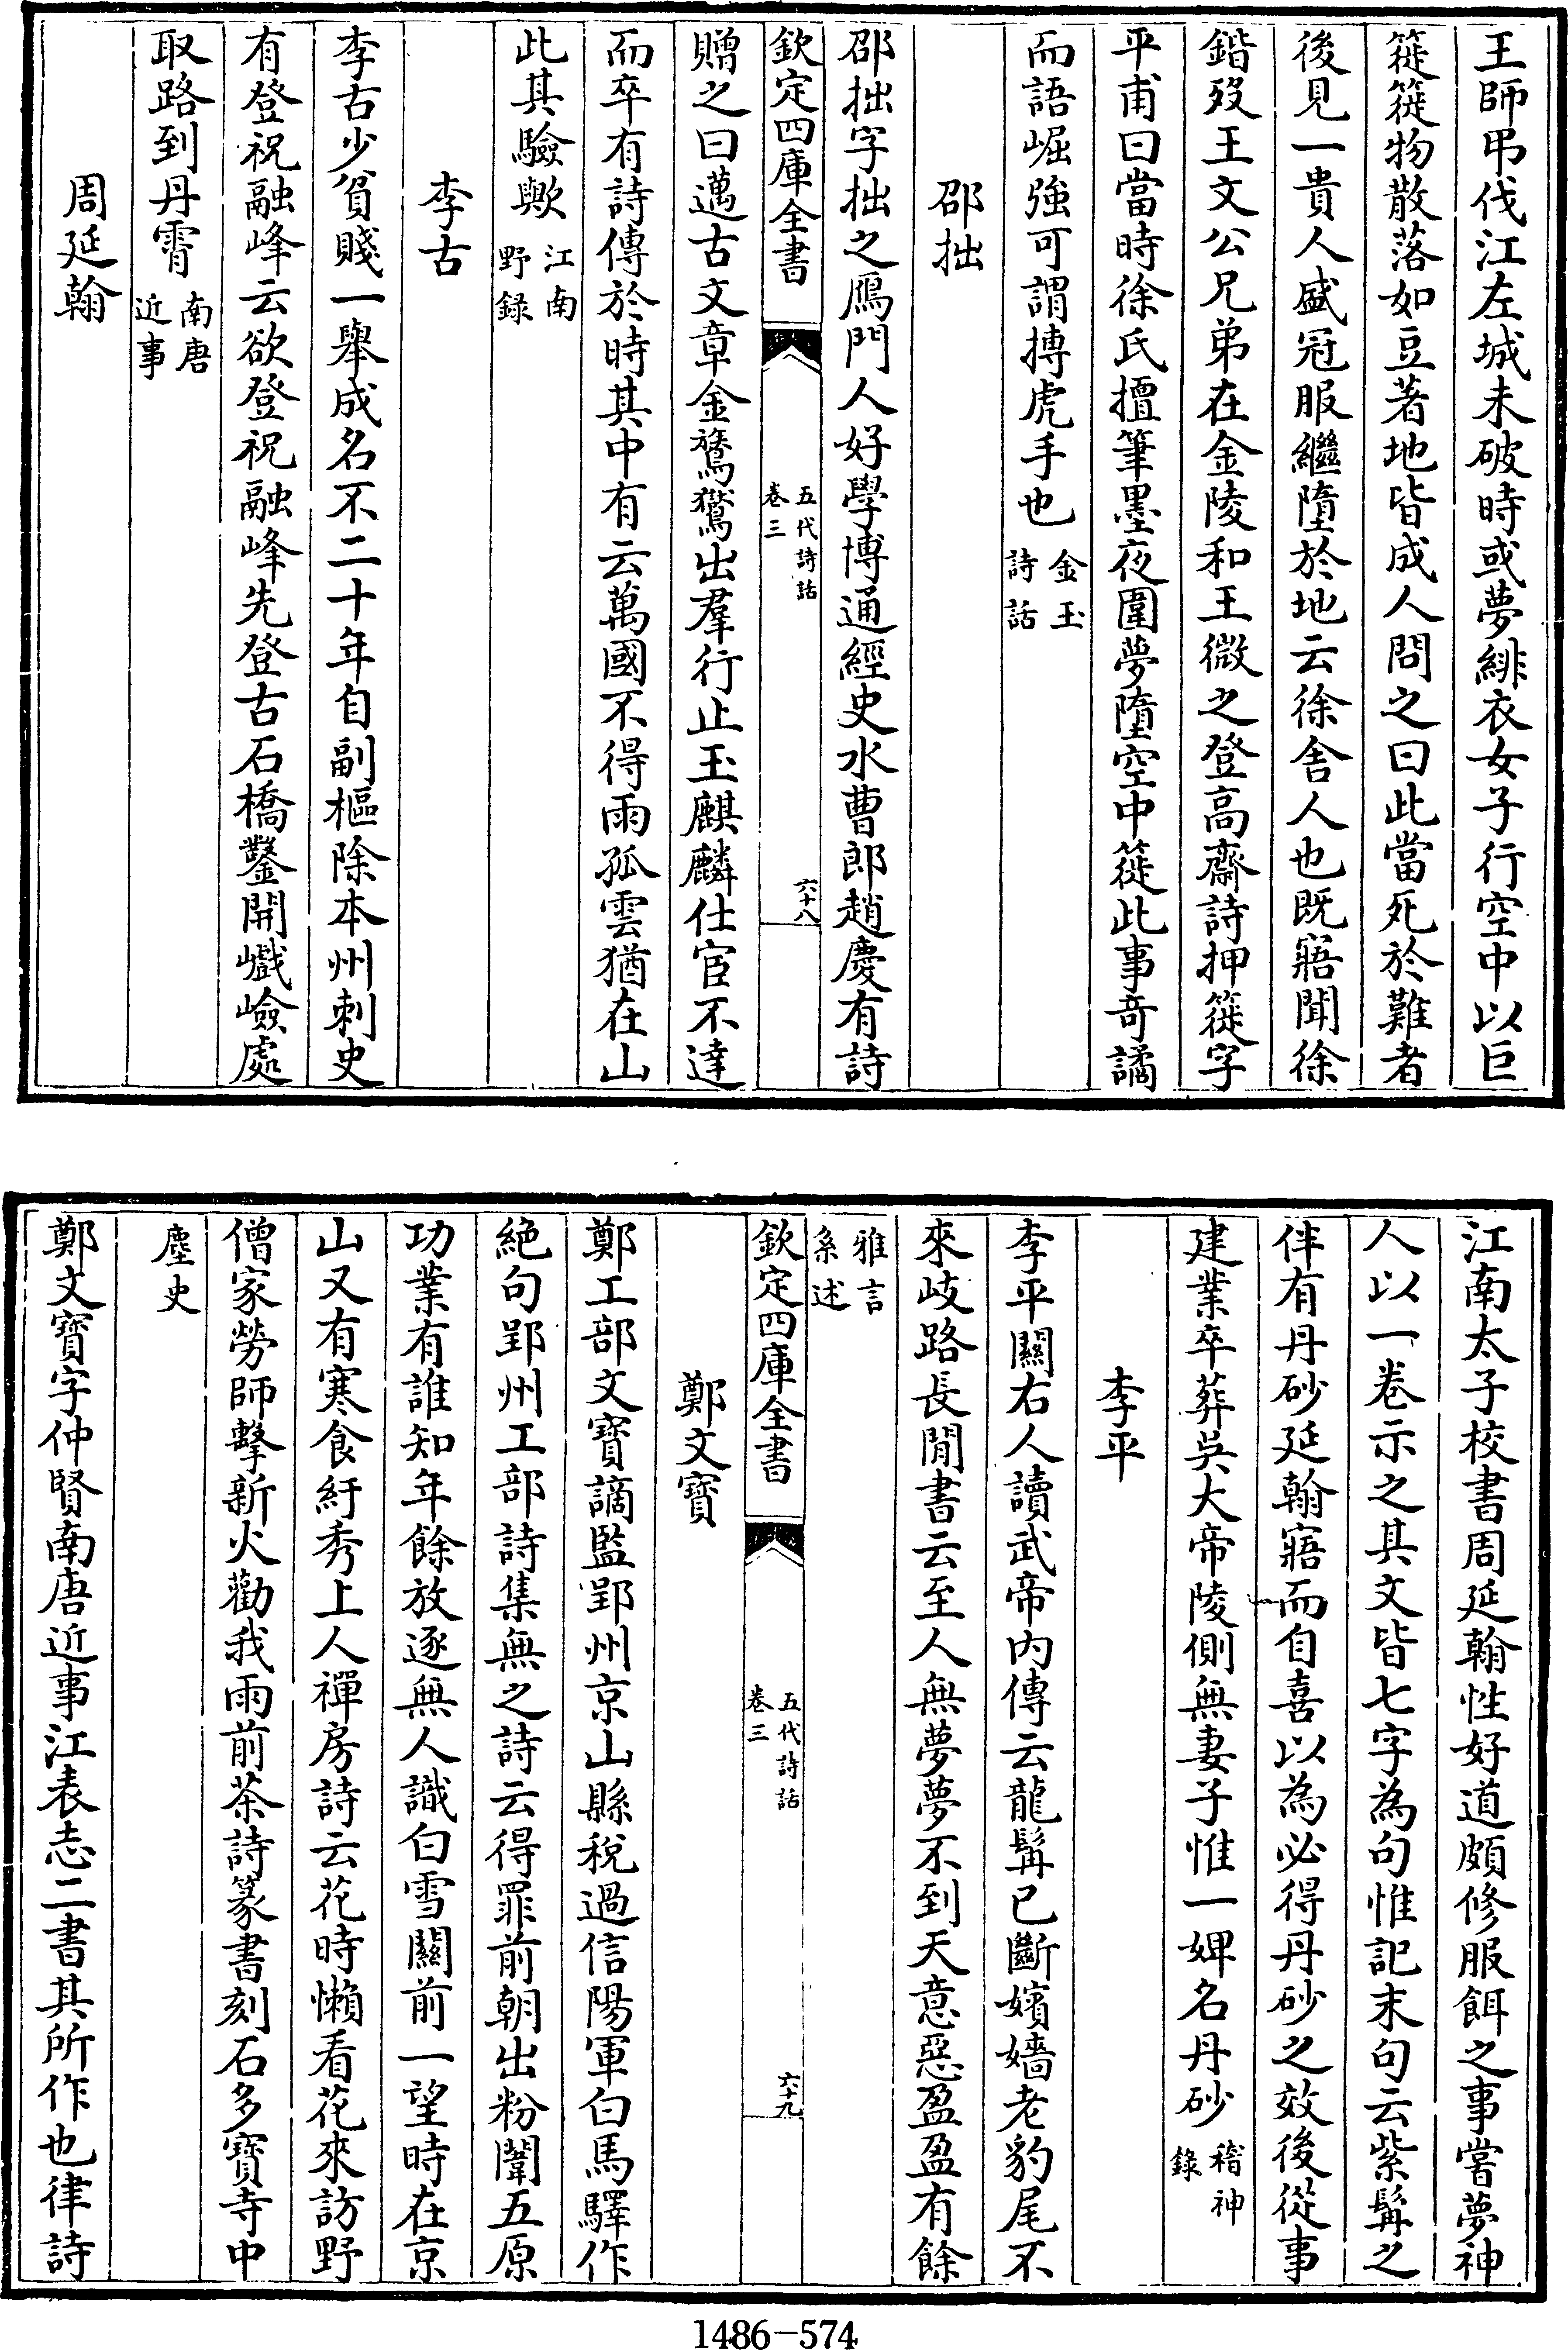 王師弔伐江左城未破時或夢緋衣女子行空中以巨
簁簁物散落如豆著地皆成人問之曰此當死於難者
後見一貴人盛冠服繼墮於地云徐舍人也既寤聞徐
鍇歿王文公兄弟在金陵和王微之登高齋詩押簁字
平甫曰當時徐氏擅筆墨夜圍夢墮空中簁此事奇譎
而語崛強可謂搏虎手也金玉
詩話
邵拙
邵拙字拙之鴈門人好學博通經史水曹郎趙慶有詩
欽定四庫全書
五代詩話
卷三
六十八
贈之曰邁古文章金鸑鷟出羣行止玉麒麟仕宦不達
而卒有詩傳於時其中有云萬國不得雨孤雲猶在山
此其驗歟江南
野錄
李古
李古少貧賤一舉成名不二十年自副樞除本州刺史
有登祝融峰云欲登祝融峰先登古石橋鑿開巇嶮處
取路到丹霄南唐
近事
周延翰
江南太子校書周延翰性好道頗修服餌之事嘗夢神
人以一卷示之其文皆七字為句惟記末句云紫髯之
伴有丹砂延翰寤而自喜以為必得丹砂之效後從事
建業卒葬吳大帝陵側無妻子惟一婢名丹砂稽神
錄
李平
李平關右人讀武帝內傳云龍髯已斷嬪嬙老豹尾不
來岐路長閒書云至人無夢夢不到天意惡盈盈有餘
雅言
系述
欽定四庫全書
五代詩話
卷三
六十九
鄭文寶
鄭工部文寶謫監郢州京山縣稅過信陽軍白馬驛作
絶句郢州工部詩集無之詩云得罪前朝出粉闈五原
功業有誰知年餘放逐無人識白雪關前一望時在京
山又有寒食紆秀上人禪房詩云花時懶看花來訪野
僧家勞師擊新火勸我雨前茶詩篆書刻石多寶寺中
塵史
鄭文寶字仲賢南唐近事江表志二書其所作也律詩
1486-574